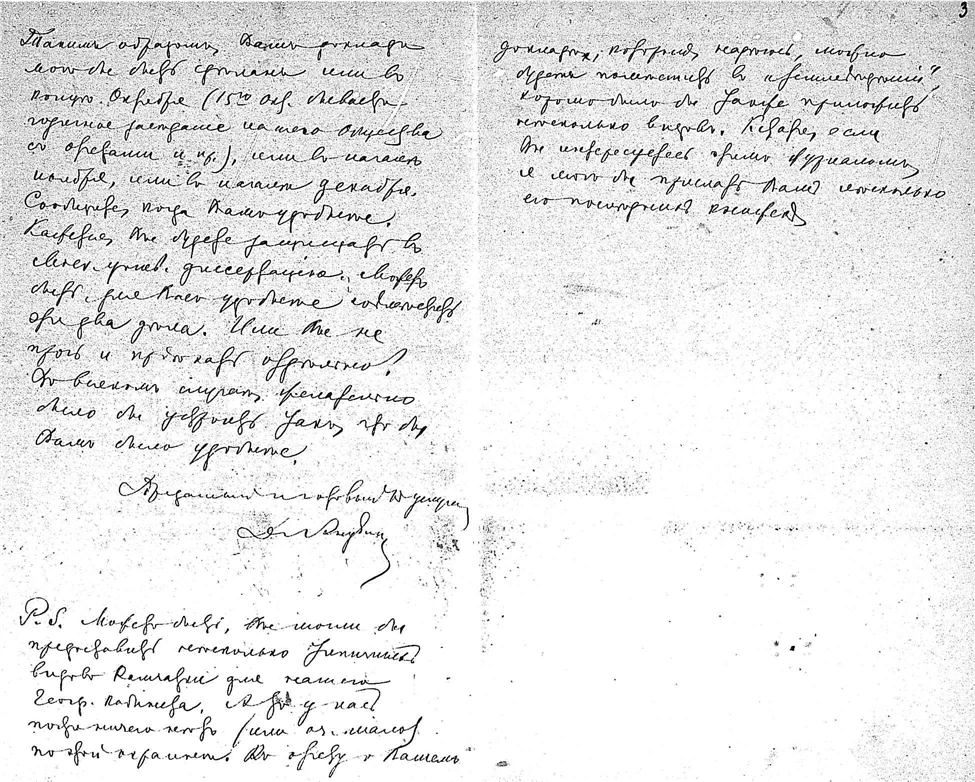 Такимъ образомъ, Вашъ докладъ
могъ бы быть сделанъ или въ
концѣ Октября (15го Окт. бываетъ
годичное заседание нашего Общества
съ отчетами и пр.), или въ началѣ
ноября, или въ началѣ декабря.
Сообщите, когда Вамъ удобнѣе.
Кажется, Вы будете защищать въ
Моск. унив. диссертацію. Можетъ
быть, для Васъ удобнѣе соединить
эти два дѣла. Или Вы не
прочь и пріѣхать отдѣльно?
Во всякомъ случаѣ, желательно
было бы устроить такъ, что бы
Вамъ было удобнѣе.
Преданный и готовый къ услугамъ
Д. Анучин
P.S. Можетъ быть, Вы могли бы
представить несколько типичныхъ
видовъ Камчатки для нашего
Геогр. кабинета. А то у насъ
почти ничего нетъ (или оч. мало)
по этой окраинѣ. Въ отчетъ о Вашемъ
3
докладѣ, который, надѣюсь, можно
будетъ поместить въ „Землеведении“,
хорошо было бы также приложить
несколько видовъ. Кстати, если
Вы интересуетесь этимъ журналомъ,
я могъ бы прислать Вамъ несколько
его последнихъ книжекъ